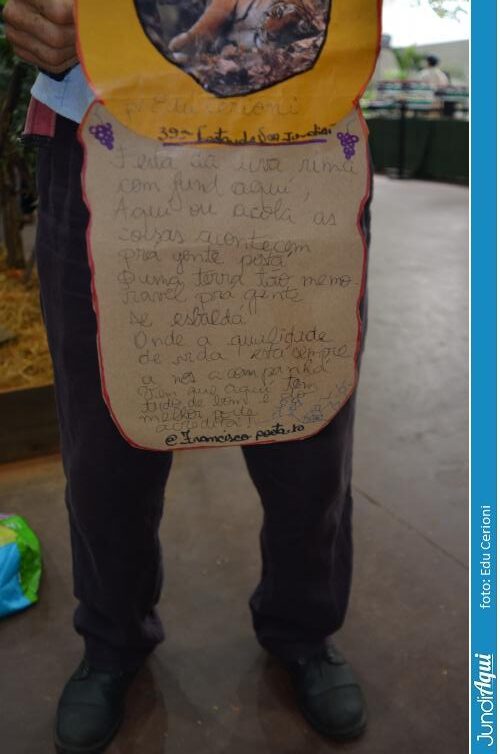 Edu cerioni
39ª Festa da Uva Jundiaí
Festa da uva, rima
com Jund aqui,
Aqui ou acolá as
coisas acontecem
pra gente
terra tão memo-
ravel pra gente
se esbalda
Onde a qualidade
de vida está sempre
a nos acompanha
tem que aqui tem
tudo de bom e
melhor pode
acreditar!
@Francisco poeta.10
foto: Edu Cerioni
JundiAqui